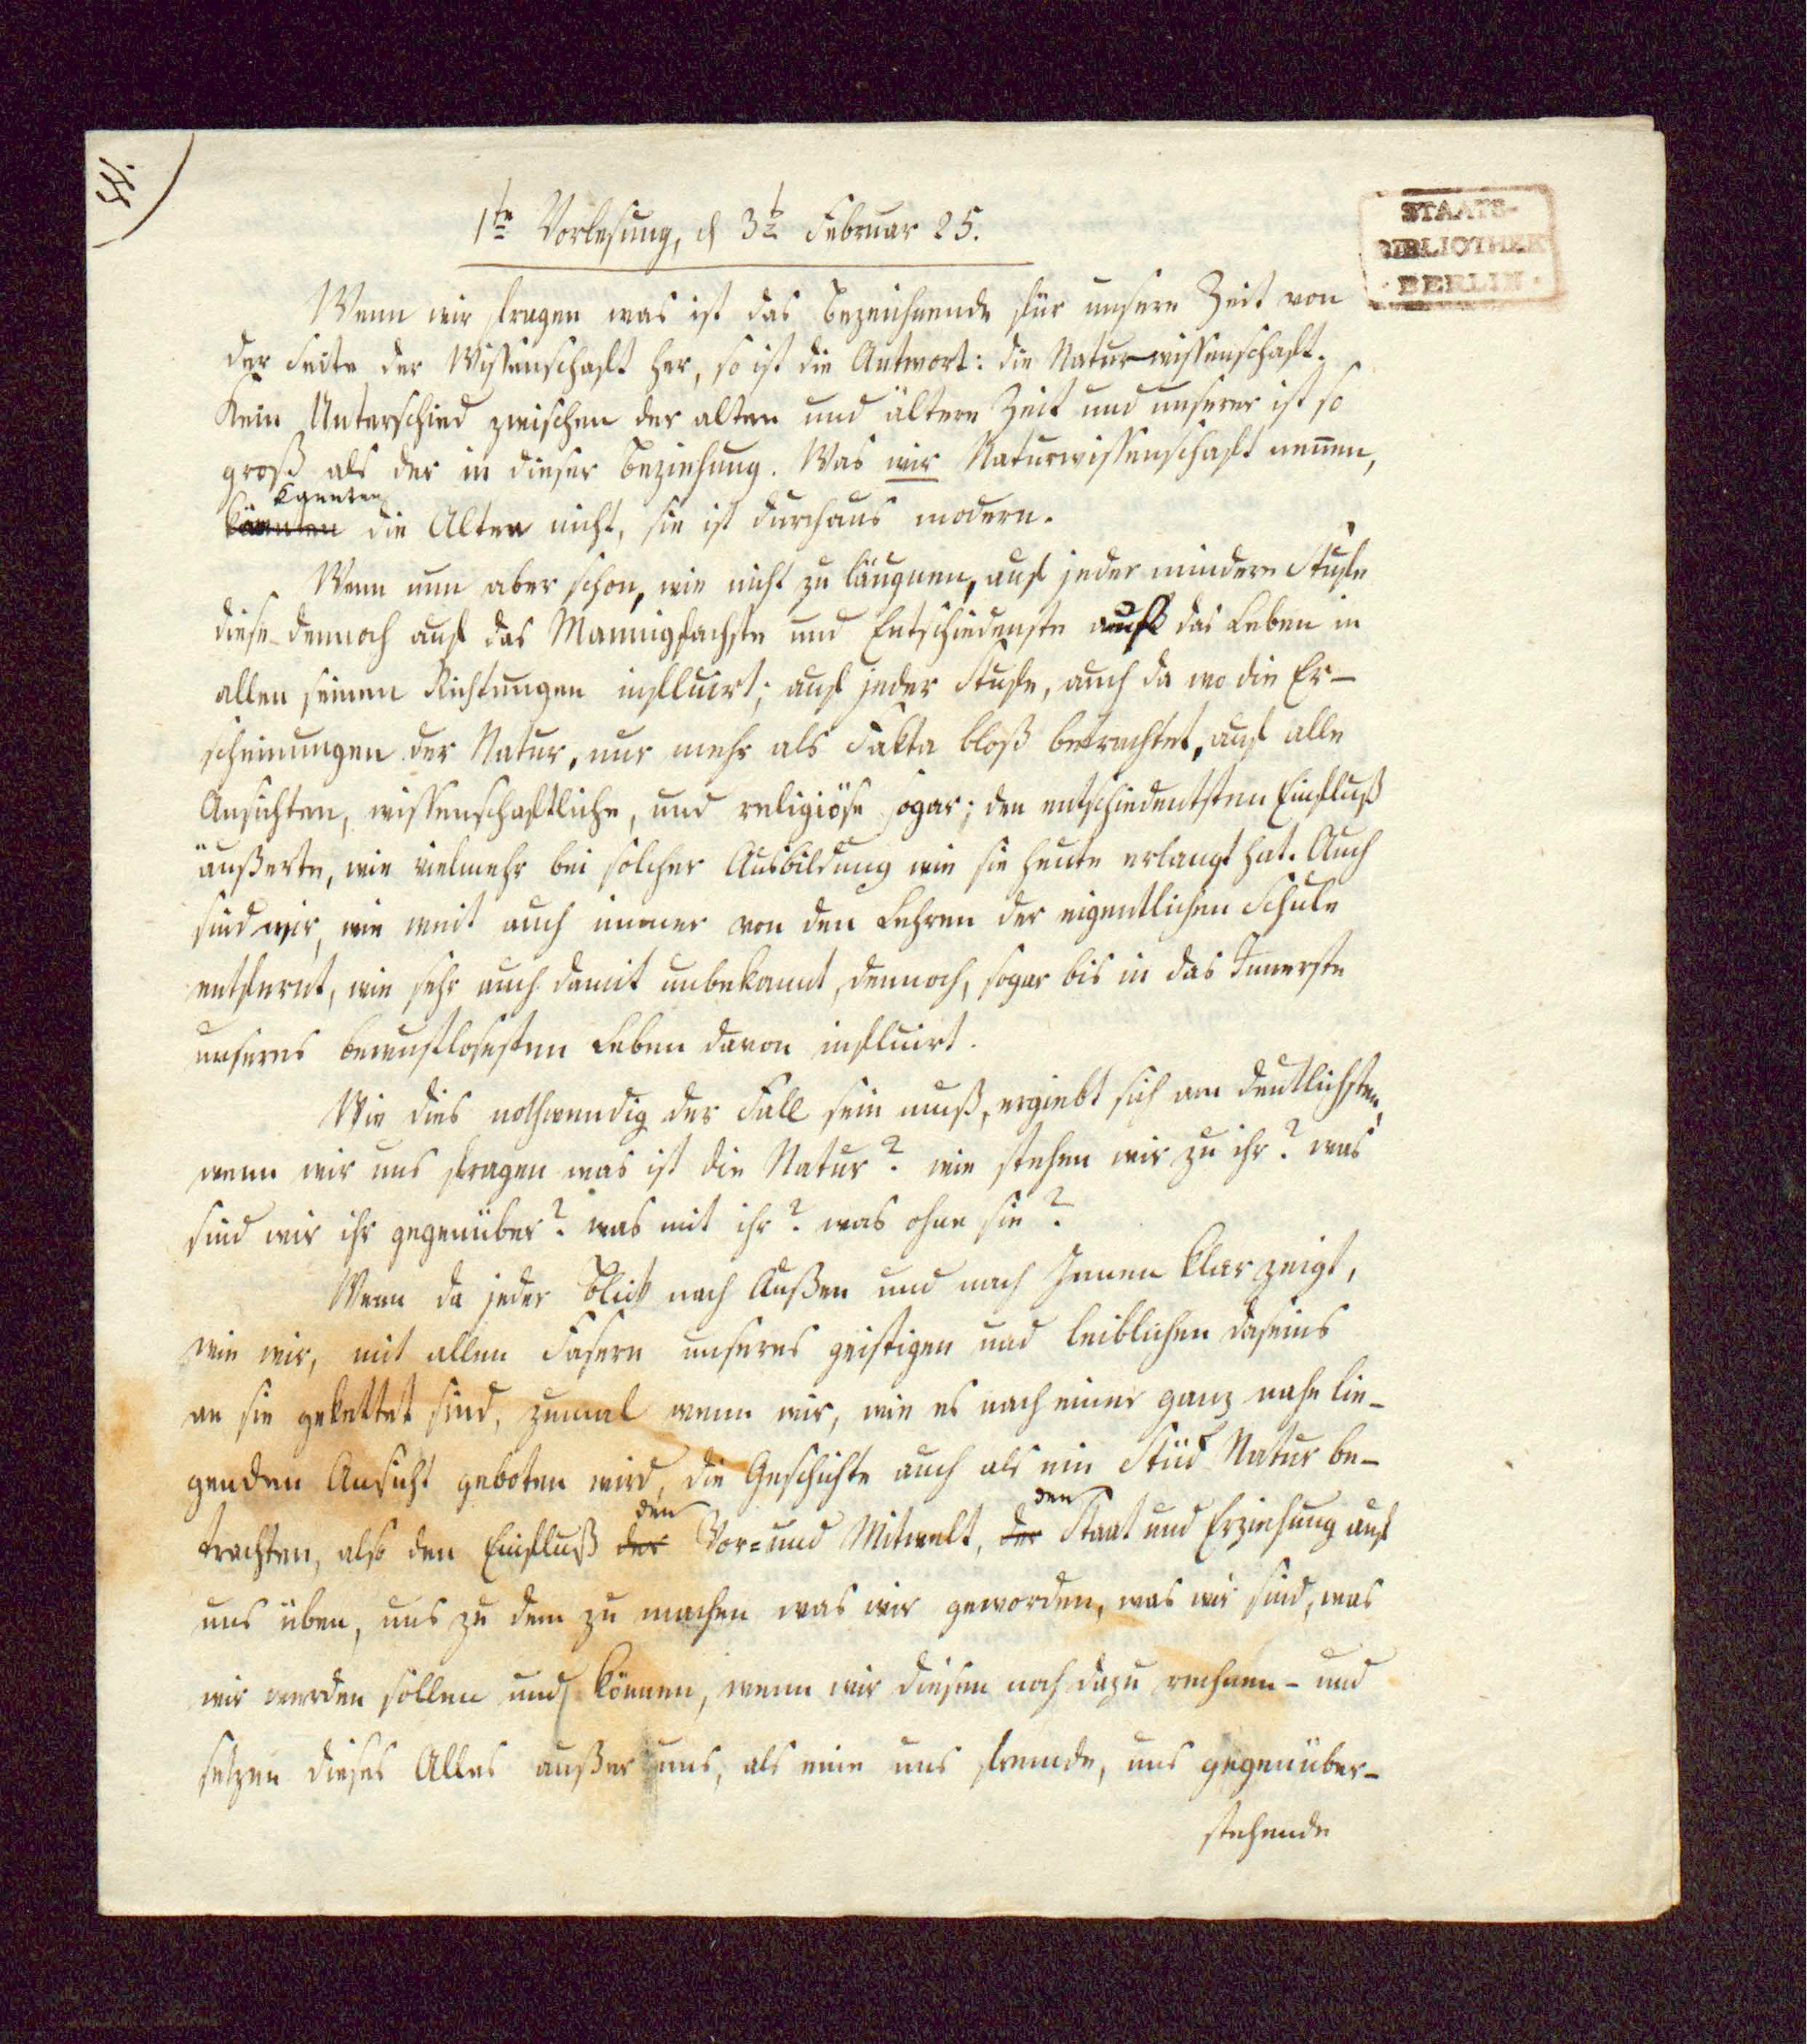 1te Vorlesung, d 3t Februar 25.
STAATS-
BIBLIOTHEK
· BERLIN ·
Wenn wir fragen was ist das Bezeichnende für unsere Zeit von
der Seite der Wissenschaft her, so ist die Antwort: die Naturwissenschaft.
Kein Unterschied zwischen der alten und ältern Zeit und unserer ist so
groß als der in dieser Beziehung. Was wir Naturwissenschaft nennen,
kannten
könnten die Alten nicht, sie ist durchaus modern.
Wenn nun aber schon, wie nicht zu läugnen, auf jeder mindern Stufe
diese dennoch auf das Mannigfachste und Entschiedenste auf das Leben in
allen seinen Richtungen influirt; auf jeder Stufe, auch da wo die Er-
scheinungen der Natur, nur mehr als Fakta bloß betrachtet, auf alle
Ansichten, wissenschaftliche, und religiöse sogar; den entschiedentsten Einfluß
äußerte, wie vielmehr bei solcher Ausbildung wie sie heute erlangt hat. Auch
sind wir, wie weit auch immer von den Lehren der eigentlichen Schule
entfernt, wie sehr auch damit unbekannt, dennoch, sogar bis in das Innerste
unseres bewustlosesten Leben davon influirt.
Wie dies nothwendig der Fall sein muß, ergiebt sich am deutlichsten,
wenn wir uns fragen was ist die Natur? wie stehen wir zu ihr? was
sind wir ihr gegenüber? was mit ihr? was ohne sie?
Wenn da jeder Blick nach Außen und nach Innen klar zeigt,
wie wir, mit allen Fasern unseres geistigen und leiblichen Daseins
an sie gekettet sind, zumal wenn wir, wie es nach einer ganz nahe lie-
genden Ansicht geboten wird, die Geschichte auch als ein Stück Natur be-
den den
trachten, also den Einfluß der Vor- und Mitwelt, der Staat und Erziehung auf
uns üben, uns zu dem zu machen was wir geworden, was wir sind, was
wir werden sollen und können, wenn wir diesen noch dazu rechnen - und
setzen dieses Alles außer uns, als eine uns fremde, uns gegenüber-
stehende